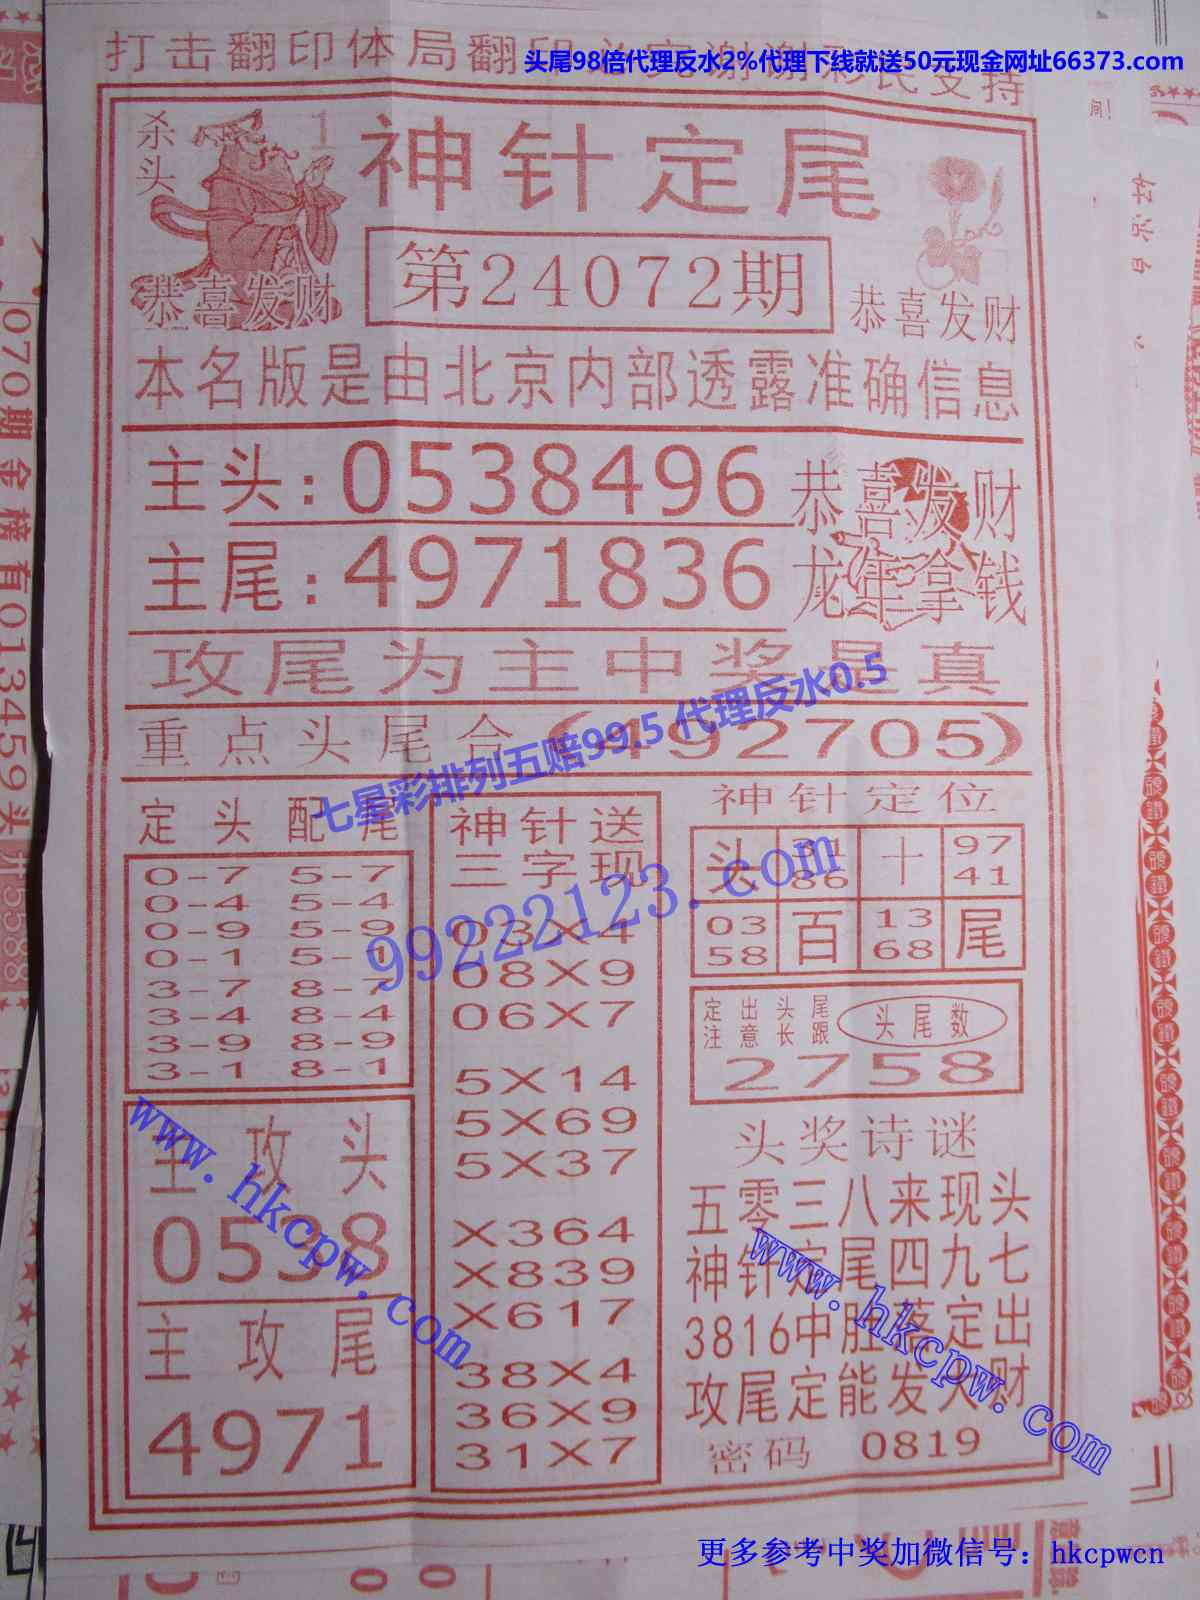 头尾98倍代理反水2%代理下线就送50元现金网址66373.com
打击翻印体局翻印必究谢谢彩民支持
杀头 1
神针定尾
第24072期
恭喜发财
恭喜发财
本名版是由北京内部透露准确信息
主头:0538496
恭喜发财
主尾:4971836
龙年拿钱
攻尾为主中奖是真
重点头尾合(492705)
七星彩排列五赔99.5 代理反水0.5
99222123.com
定头配尾
0-7 5-7
0-4 5-4
0-9 5-9
0-1 5-1
3-7 8-7
3-4 8-4
3-9 8-9
3-1 8-1
主攻头
0538
主攻尾
4971
神针送
三字现
03X4
08X9
06X7
5X14
5X69
5X37
X364
X839
X617
38X4
36X9
31X7
神针定位
头 31 十 97
86 41
03 百 13 尾
58 68
定出头尾
注意长跟
头尾数
2758
头奖诗谜
五零三八来现头
神针定尾四九七
3816中胆落定出
攻尾定能发大财
密码 0819
www.hkcpw.com
www.hkcpw.com
更多参考中奖加微信号：hkcpwcn
070期金榜有013459头